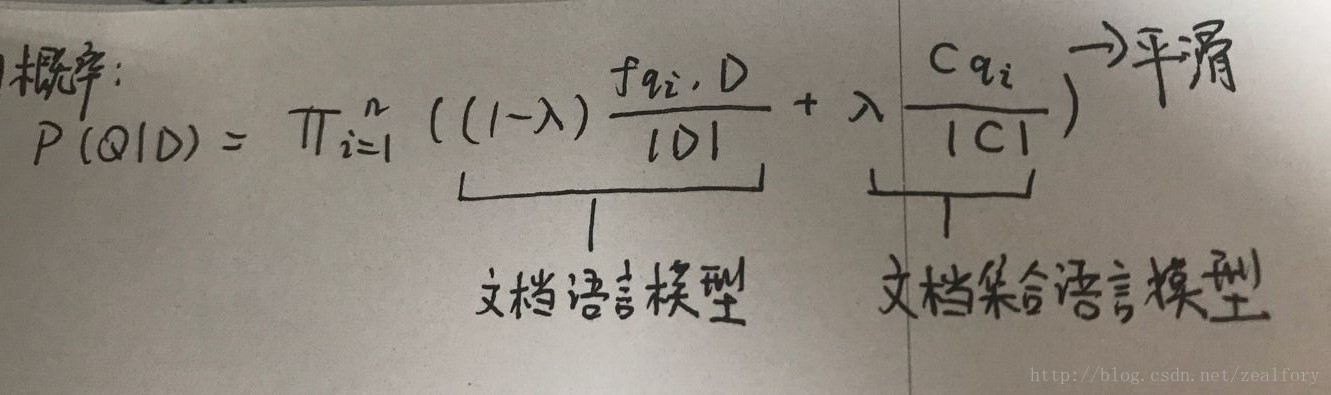 概率:
P(Q|D) = ∏_{i=1}^{n} ((1-λ) \frac{f_{q_i, D}}{|D|} + λ \frac{C_{q_i}}{|C|}) → 平滑
文档语言模型 文档集合语言模型
http://blog.csdn.net/zealfory